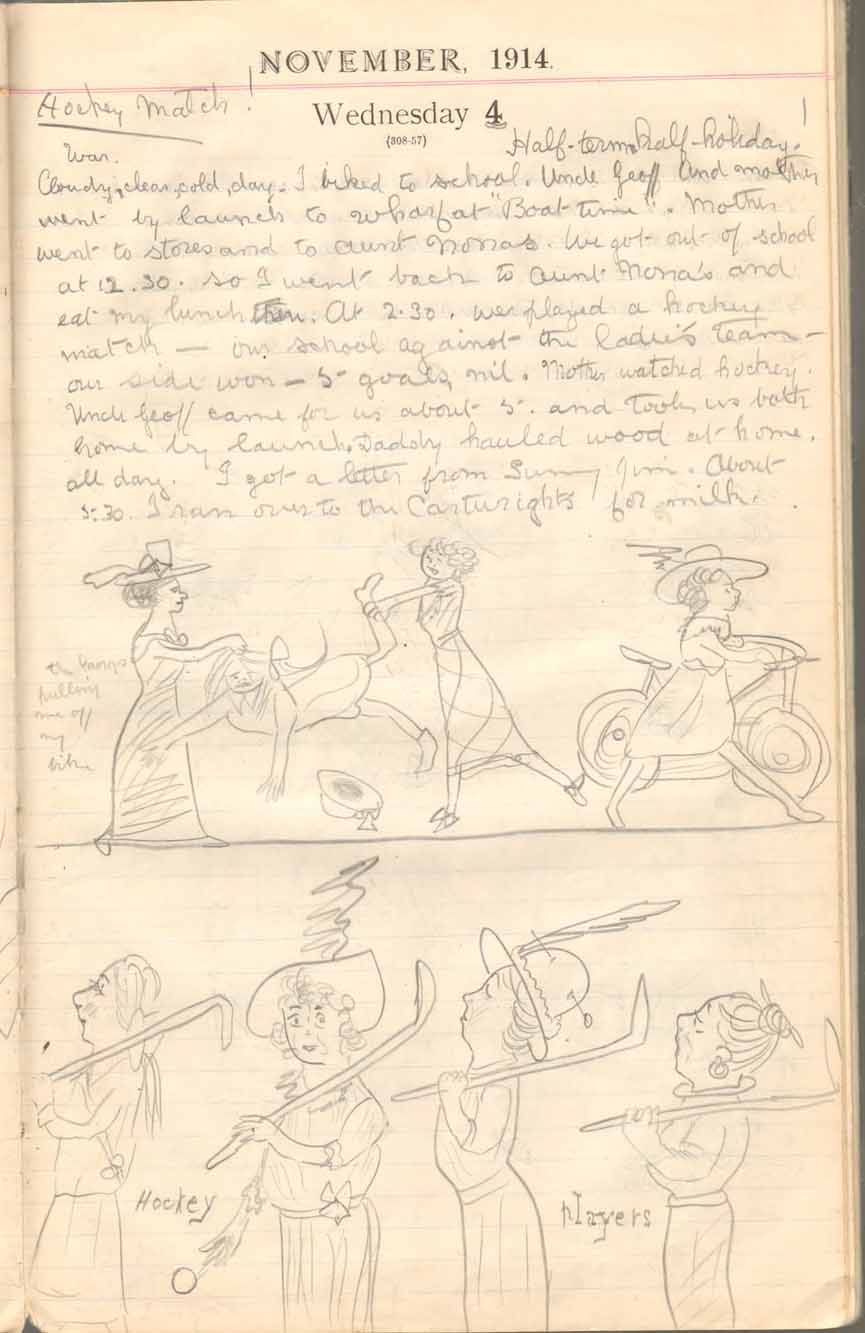 NOVEMBER, 1914.
Hockey Match!
Wednesday 4
(308-57)
Half-term half-holiday.
War.
Cloudy, clear, cold, day. I biked to school. Uncle Geoff and mother
went by launch to wharf at "Boat time". Mother
went to stores and to aunt Nona's. We got out of school
at 12.30. so I went back to Aunt Nona's and
eat my lunch then. At 2.30. we played a hockey
match — our school against the ladie's team —
our side won — 5 goals, nil. Mother watched hockey.
Uncle Geoff came for us about 5. and took us both
home by launch. Daddy hauled wood at home.
all day. I got a letter from Sunny Jim. About
5.30. I ran over to the Cartwrights for milk.
the
pulling
me off
my
bike
Hockey
players